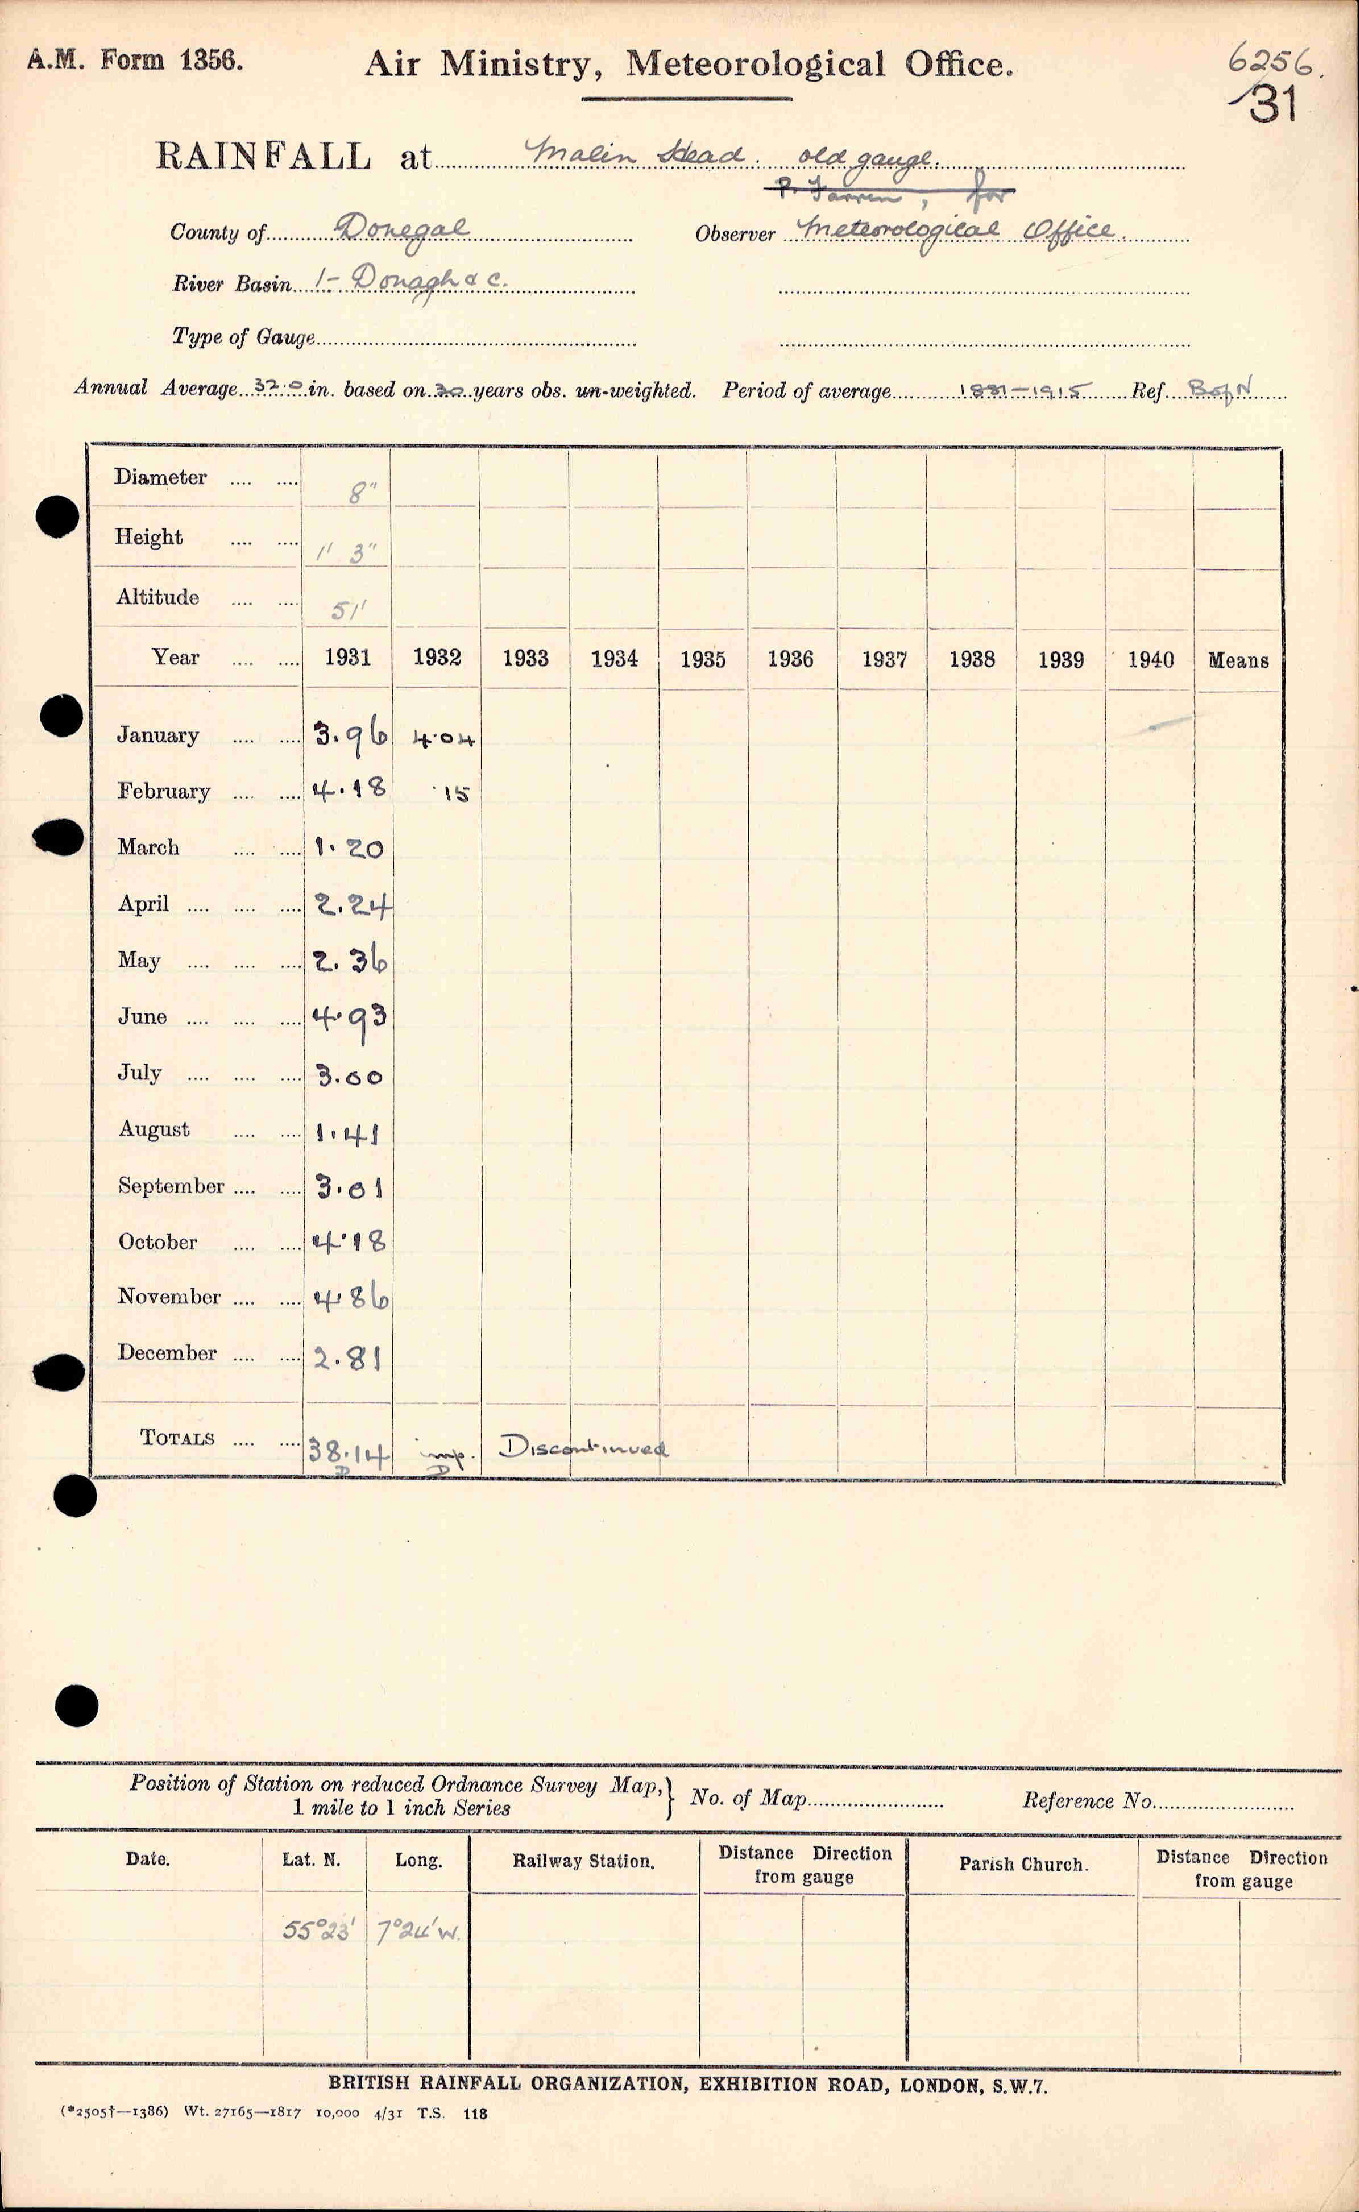 A.M. Form 1356.
Air Ministry, Meteorological Office.
6256.
/31
RAINFALL at Malin Head. old gauge.
P. Farren, for
County of Donegal
Observer Meteorological Office.
River Basin 1- Donagh &c.
Type of Gauge
Annual Average 32.0 in. based on 30 years obs. un-weighted. Period of average 1881-1915 Ref. B of N
Diameter .... .... 8"
Height .... .... 1' 3"
Altitude .... .... 51'
Year .... .... 1931 1932 1933 1934 1935 1936 1937 1938 1939 1940 Means
January .... .... 3.96 4.04
February .... .... 4.18 .15
March .... .... 1.20
April .... .... .... 2.24
May .... .... .... 2.36
June .... .... .... 4.93
July .... .... .... 3.00
August .... .... 1.41
September .... .... 3.01
October .... .... 4.18
November .... .... 4.86
December .... .... 2.81
TOTALS .... .... 38.14 imp. Discontinued
D D
Position of Station on reduced Ordnance Survey Map,} No. of Map Reference No.
1 mile to 1 inch Series
Date. Lat. N. Long. Railway Station. Distance Direction from gauge Parish Church. Distance Direction from gauge
55°23' 7°24'W.
BRITISH RAINFALL ORGANIZATION, EXHIBITION ROAD, LONDON, S.W.7.
(*2505†—1386) Wt. 27165—1817 10,000 4/31 T.S. 118